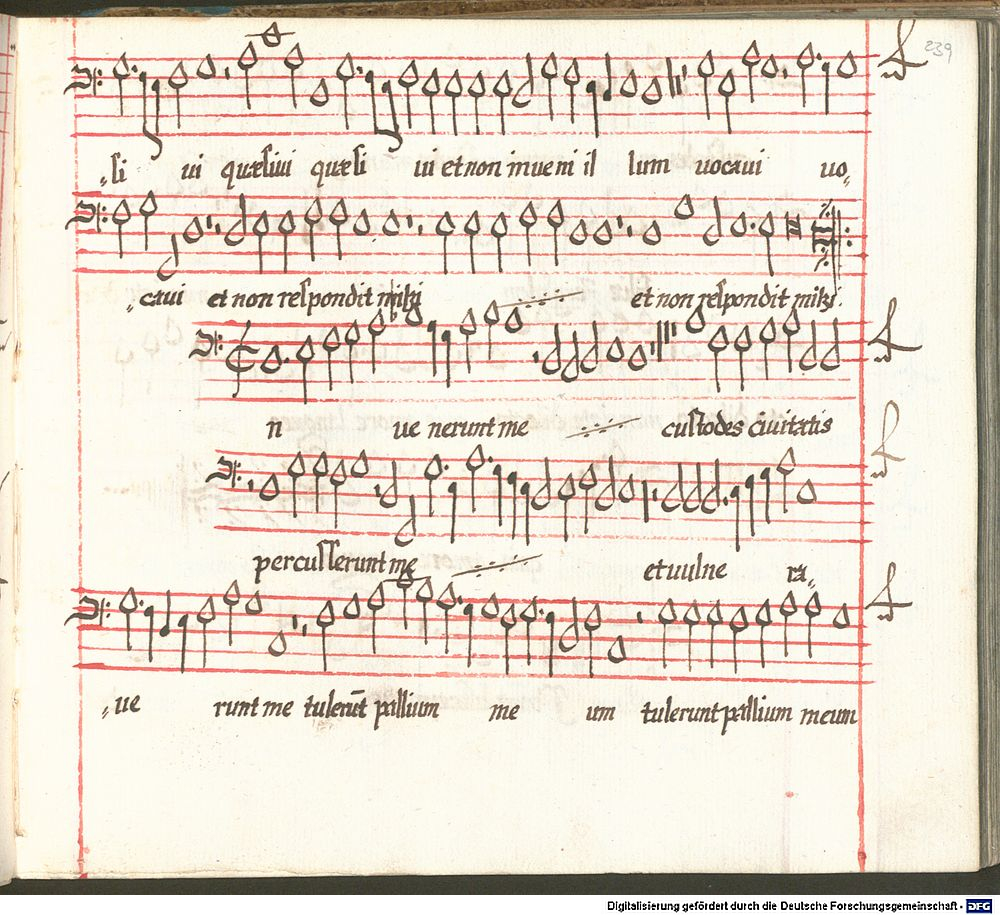 239
„si ui quæsiui quæsi ui et non inueni il lum uocaui uo„
„caui et non respondit mihi ·/· et non respondit mihi.
n ue nerunt me ·/· custodes ciuitatis
percusserunt me ·/· et uulne ra„
„ue runt me tulerūt pallium me um tulerunt pallium meum
Digitalisierung gefördert durch die Deutsche Forschungsgemeinschaft - DFG